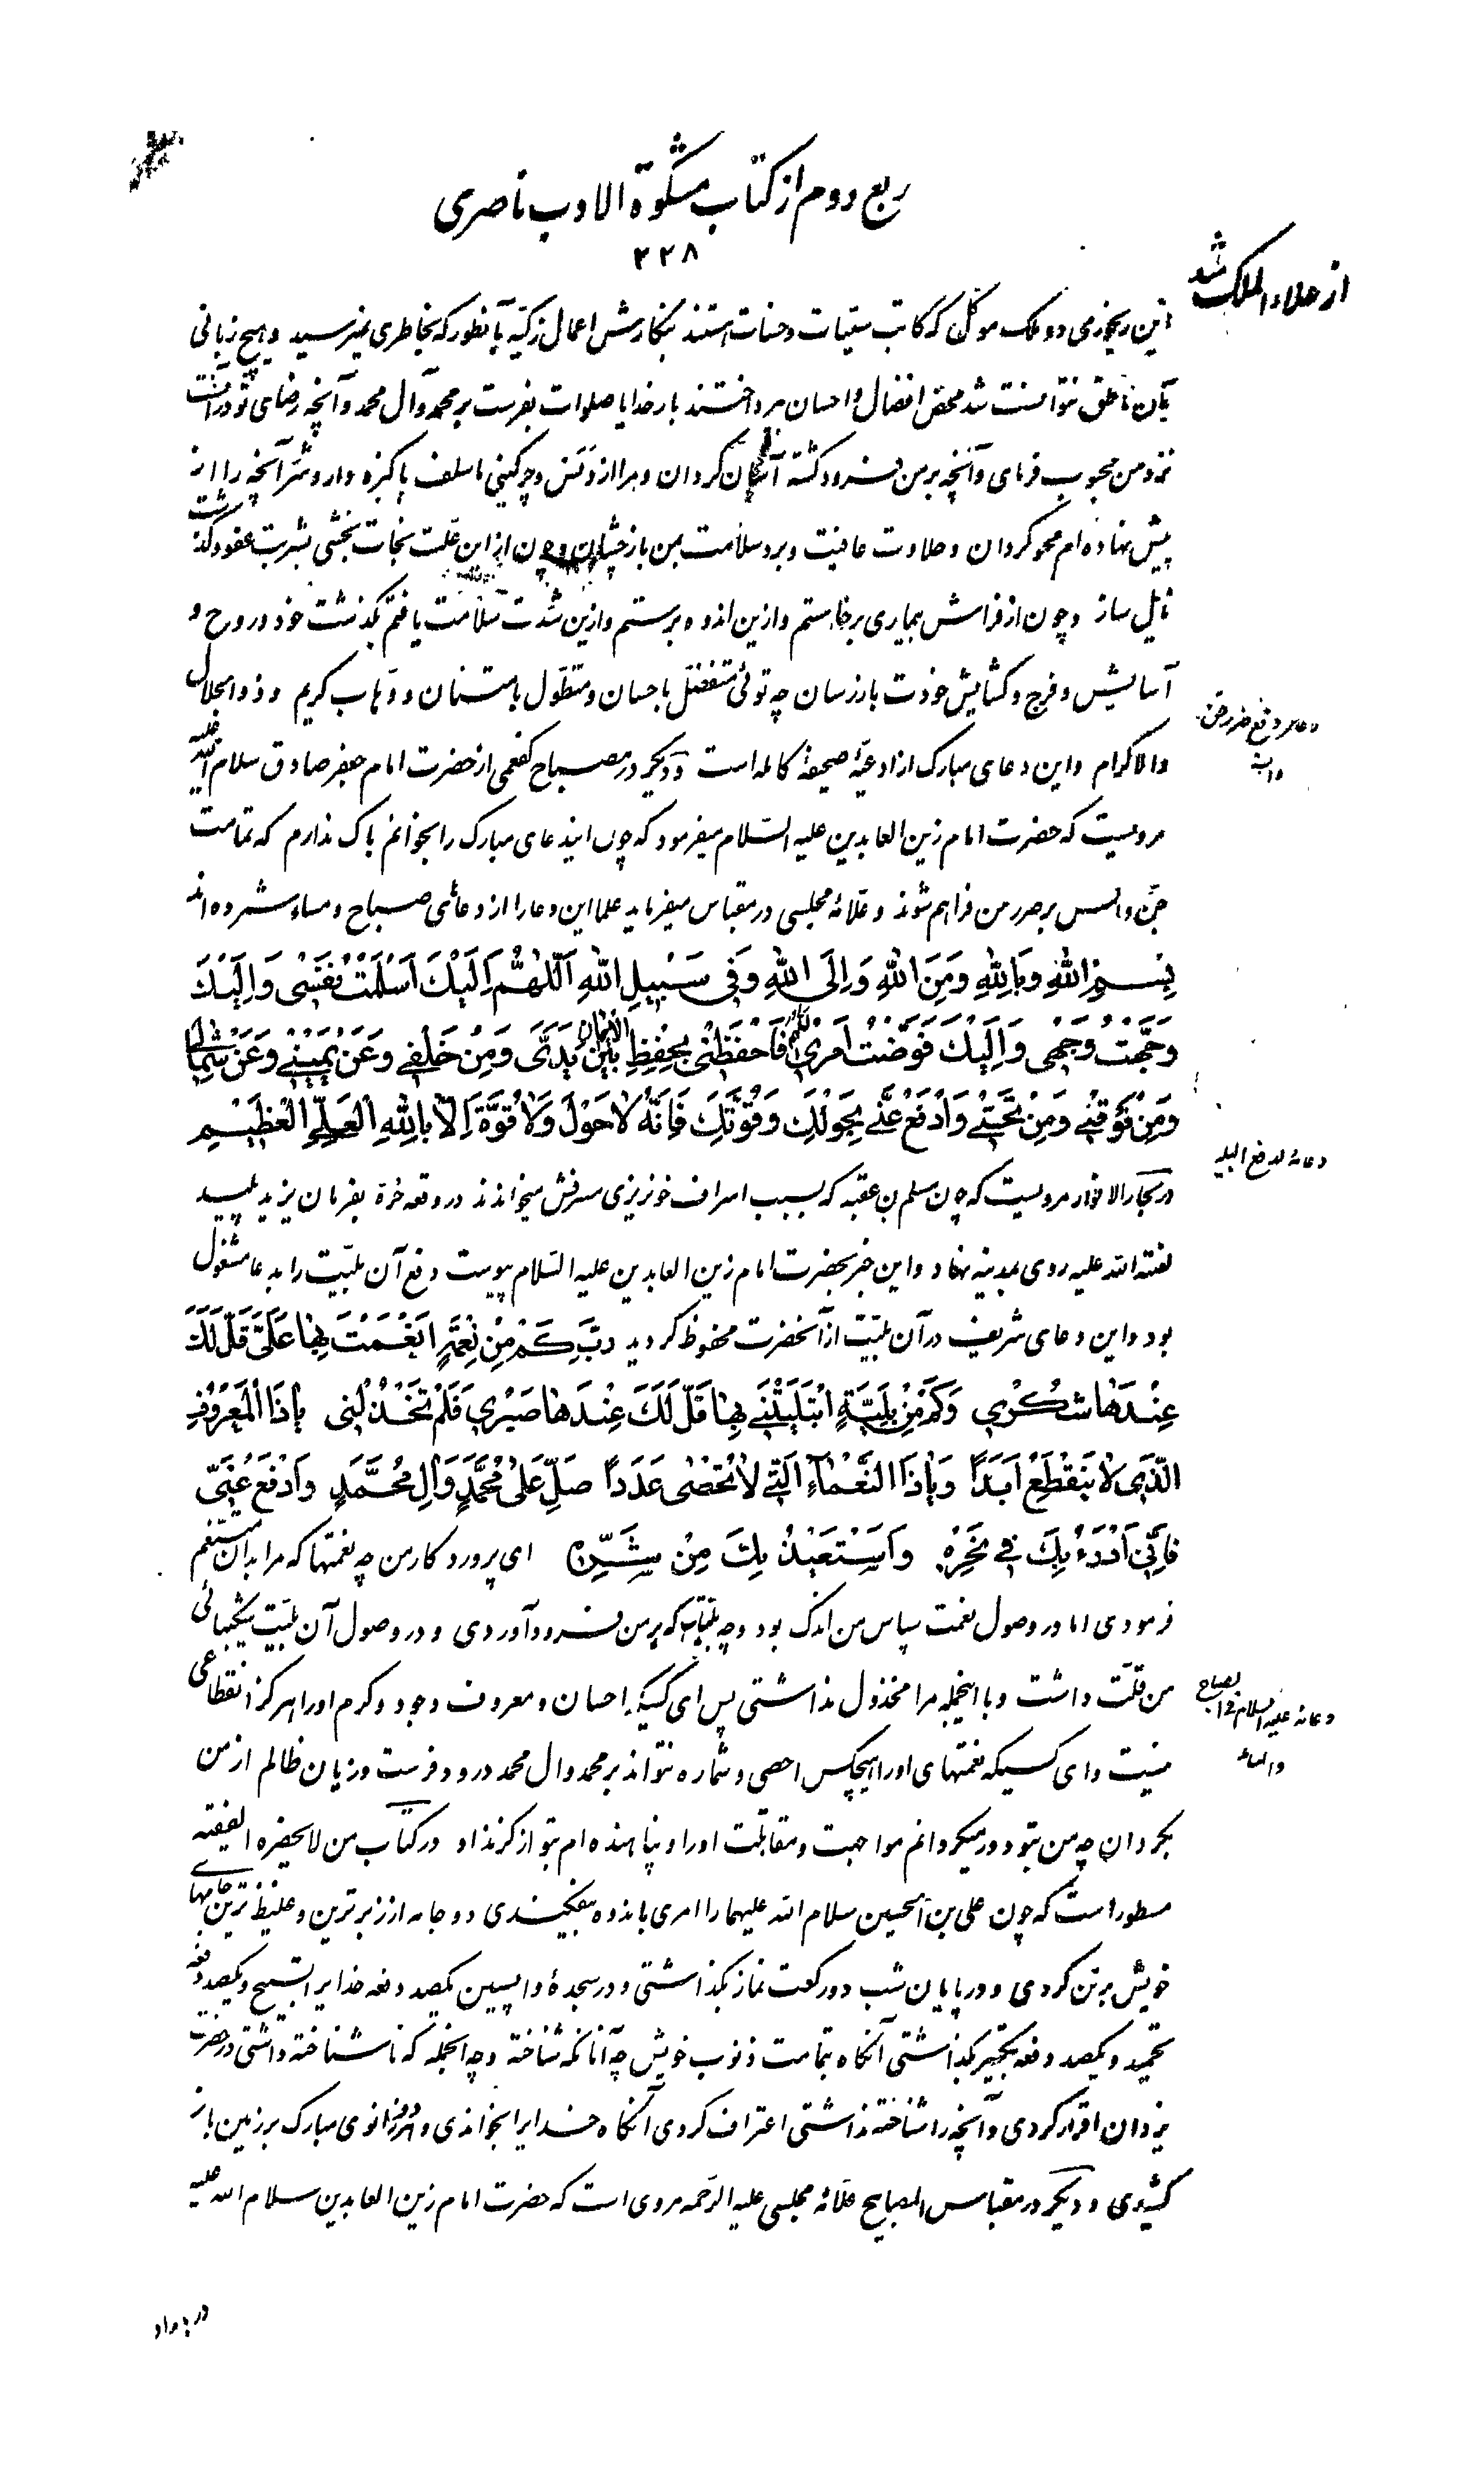 ربع دوم از کتاب مشکوة الادب ناصری
۲۲۸
این رنجوری دو ملک موکل که کاتب سیئات و حسنات هستند بنگارش اعمال زکیه بآنطور که بخاطری نمیرسید و هیچ زبانی
بآن ناطق نتوانست شد محض افضال و احسان پرداختند بار خدایا صلوات بفرست بر محمد و آل محمد و آنچه رضای تو در آنست
نزد من محبوب فرمای و آنچه بر من فرود گشته آسان گردان و مرا از دنس و چرکینی ما سلف پاکیزه دار و شر آنچه را از
پیش نهاده‌ام محو گردان و حلاوت عافیت و برد سلامت بمن باز چشان و چون از این علت نجات بخشی بشربت عفو و گذشت
نایل ساز و چون از فراش بیماری برخاستم و ازین اندوه برستم و ازین شدت سلامت یافتم بگذشت خود و روح و
آسایش و فرج و گشایش خودت باز رسان چه توئی متفضل باحسان و متطول بامتنان و وهاب کریم و ذو الجلال
والاکرام و این دعای مبارک از ادعیه صحیفه کامله است و دیگر در مصباح کفعمی از حضرت امام جعفر صادق سلام الله علیه
مرویست که حضرت امام زین العابدین علیه السلام میفرمود که چون ایندعای مبارک را بخوانم باک ندارم که تمامت
جن و انس بر ضرر من فراهم شوند و علامه مجلسی در مقباس میفرماید علما این دعا را از دعاهای صباح و مساء شمرده‌اند
بِسْمِ اللهِ وَبِاللهِ وَمِنَ اللهِ وَاِلَى اللهِ وَفِی سَبِیلِ اللهِ اَللّهُمَّ اِلَیْكَ اَسْلَمْتُ نَفْسِی وَاِلَیْكَ
وَجَّهْتُ وَجْهِی وَاِلَیْكَ فَوَّضْتُ اَمْرِی فَاحْفَظْنِی بِحِفْظِ الْایمَانِ مِنْ بَیْنِ یَدَیَّ وَمِنْ خَلْفِی وَعَنْ یَمِینِی وَعَنْ شِمَالِی
وَمِنْ فَوْقِی وَمِنْ تَحْتِی وَادْفَعْ عَنِّی بِحَوْلِكَ وَقُوَّتِكَ فَاِنَّهُ لا حَوْلَ وَلا قُوَّةَ اِلّا بِاللهِ الْعَلِیِّ الْعَظِیمِ
در بحار الانوار مرویست که چون مسلم بن عقبه که بسبب اسراف خونریزی مسرفش میخوانند در وقعه حره بفرمان یزید پلید
لعنة الله علیه روی بمدینه نهاد و این خبر بحضرت امام زین العابدین علیه السلام پیوست دفع آن بلیت را بدعا مشغول
بود و این دعای شریف در آن بلیت از آنحضرت محفوظ گردید رَبِّ كَمْ مِنْ نِعْمَةٍ اَنْعَمْتَ بِهَا عَلَیَّ قَلَّ لَكَ
عِنْدَهَا شُكْرِی وَكَمْ مِنْ بَلِیَّةٍ ابْتَلَیْتَنِی بِهَا قَلَّ لَكَ عِنْدَهَا صَبْرِی فَلَمْ تَخْذُلْنِی یا ذَا الْمَعْرُوفِ
الَّذِی لا یَنْقَطِعُ اَبَدًا وَیا ذَا النَّعْمَاءِ الَّتِی لا تُحْصٰی عَدَدًا صَلِّ عَلٰی مُحَمَّدٍ وَآلِ مُحَمَّدٍ وَادْفَعْ عَنِّی
فَاِنِّی اَدْرَءُ بِكَ فِی نَحْرِهِ وَاَسْتَعِیذُ بِكَ مِنْ شَرِّهِ ای پروردگار من چه نعمتها که مرا بدان متنعم
فرمودی اما در وصول نعمت سپاس من اندک بود و چه بلیت‌ها که بر من فرود آوردی و در وصول آن بلیت شکیبائی
من قلت داشت و با اینجمله مرا مخذول نداشتی پس ای کسیکه احسان و معروف و جود و کرم او را هرگز انقطاعی
نیست و ای کسیکه نعمتهای او را هیچکس احصی و شماره نتواند بر محمد و آل محمد درود فرست و زیان ظالم از من
بگردان چه من بتو دور میگردانم مواجهت و مقابلت او را و پناهنده‌ام بتو از گزند او در کتاب من لا یحضره الفقیه
مسطور است که چون علی بن الحسین سلام الله علیهما را امری باندوه بیفکندی دو جامه از زبرترین و غلیظ ترین جامهای
خویش بر تن کردی و در پایان شب دو رکعت نماز بگذاشتی و در سجدهٔ واپسین یکصد دفعه خدایرا تسبیح و یکصد دفعه
تحمید و یکصد دفعه تکبیر بگذاشتی آنگاه بتمامت ذنوب خویش چه آنانکه شناخته و چه آنجمله که ناشناخته داشتی در حضرت
یزدان اقرار کردی و آنچه را شناخته نداشتی اعتراف کردی آنگاه خدایرا بخواندی و هر دو زانوی مبارک بر زمین باز
کشیدی و دیگر در مقباس المصابیح علامه مجلسی علیه الرحمه مروی است که حضرت امام زین العابدین سلام الله علیه
از علاء الملک شد
دعاء دفع ضرر جن
دعائه لدفع البلیه
دعائه علیه السلام فی الصباح
والمساء